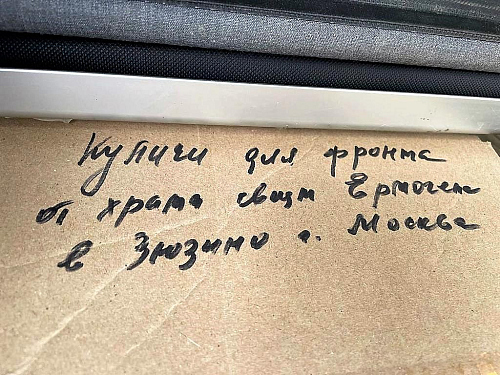 Куличи для фронта
от храма свщм Ермогена
в Зюзино г. Москва